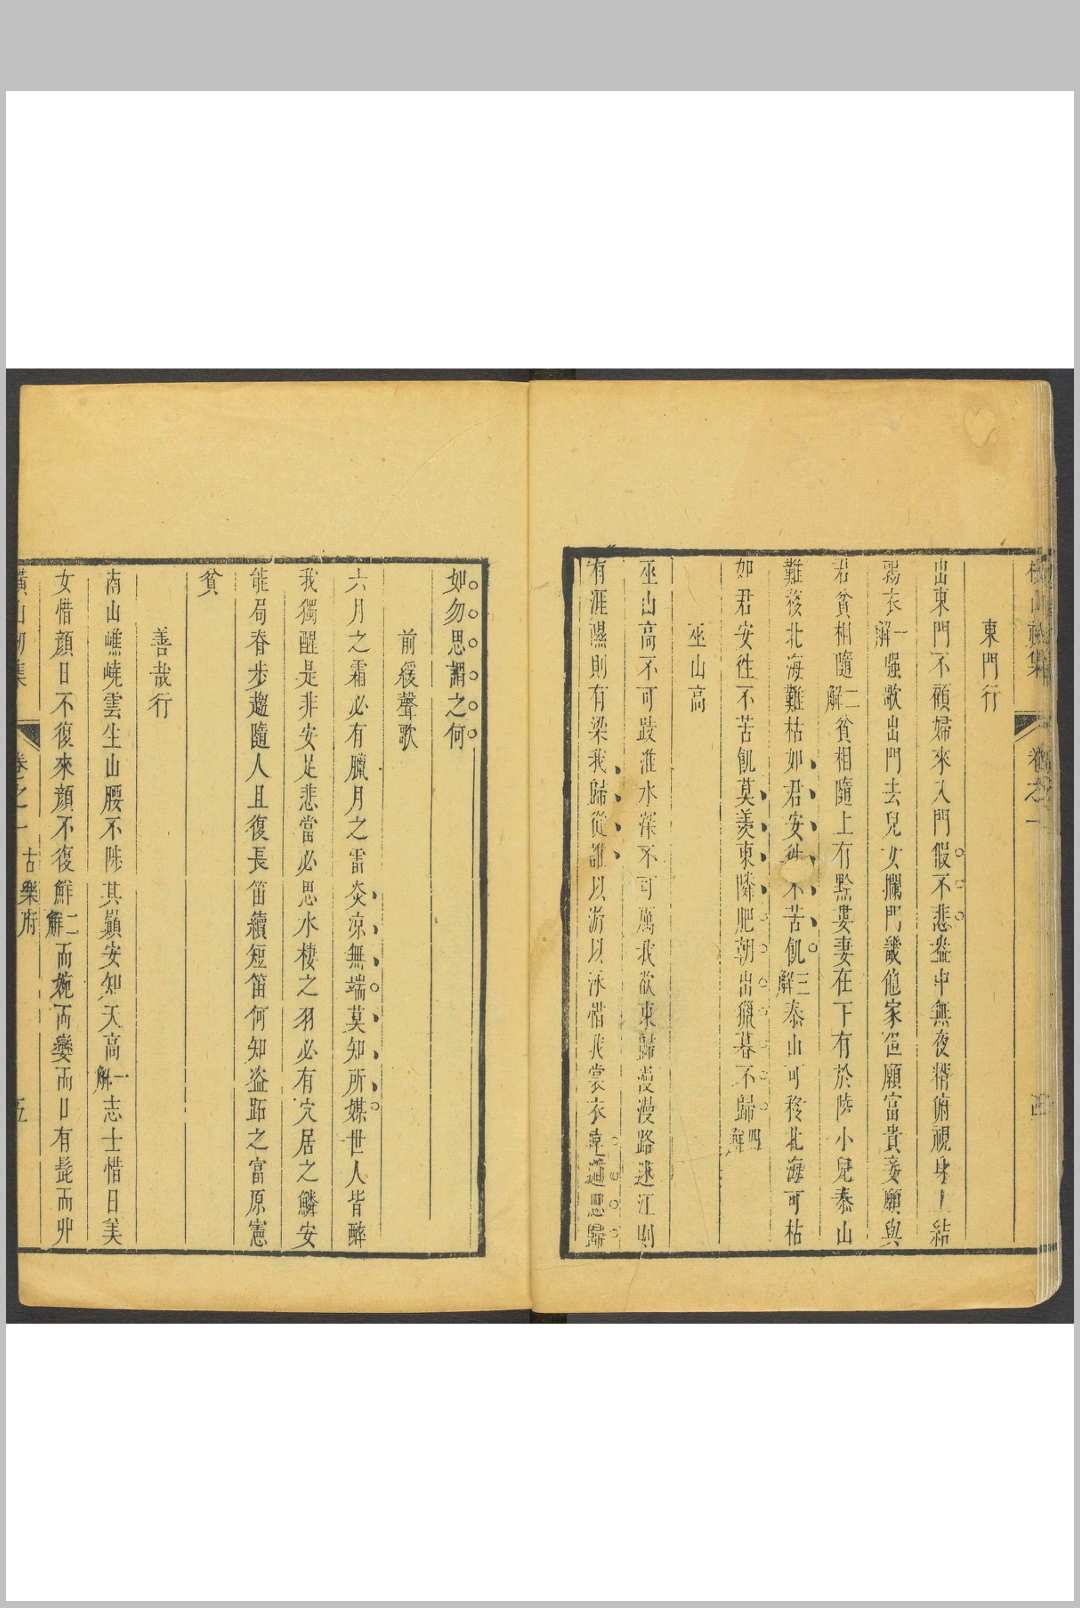 橫山初集
卷之一
四
東門行
出東門不顧婦來入門假不悲盎中無夜糈俯視身上結
鶉衣一解強歌出門去兒女攔門畿他家但願富貴妾願與
君貧相隨二解貧相隨上有黔婁妻在下有於陵小兒泰山
難移北海難枯如君安往不苦飢三解泰山可移北海可枯
如君安往不苦飢莫羨東隣肥朝出獵暮不歸四解
巫山高
巫山高不可踐淮水深不可厲我欲東歸漫漫路迷江則
有涯濕則有梁我歸從誰以游以泳惜我裳衣遠道思歸
如勿思謂之何
前緩聲歌
六月之霜必有臘月之雷炎涼無端莫知所媒世人皆醉
我獨醒是非安足悲當必思水棲之羽必有穴居之鱗安
能局眷步趨隨人且復長笛續短笛何知盜跖之富原憲
貧
善哉行
南山嶕嶢雲坐山腰不陟其巔安知天高一解志士惜日美
女惜顏日不復來顏不復鮮二解而婉而孌而日有髭而丱
橫山初集
卷之一
古樂府
五